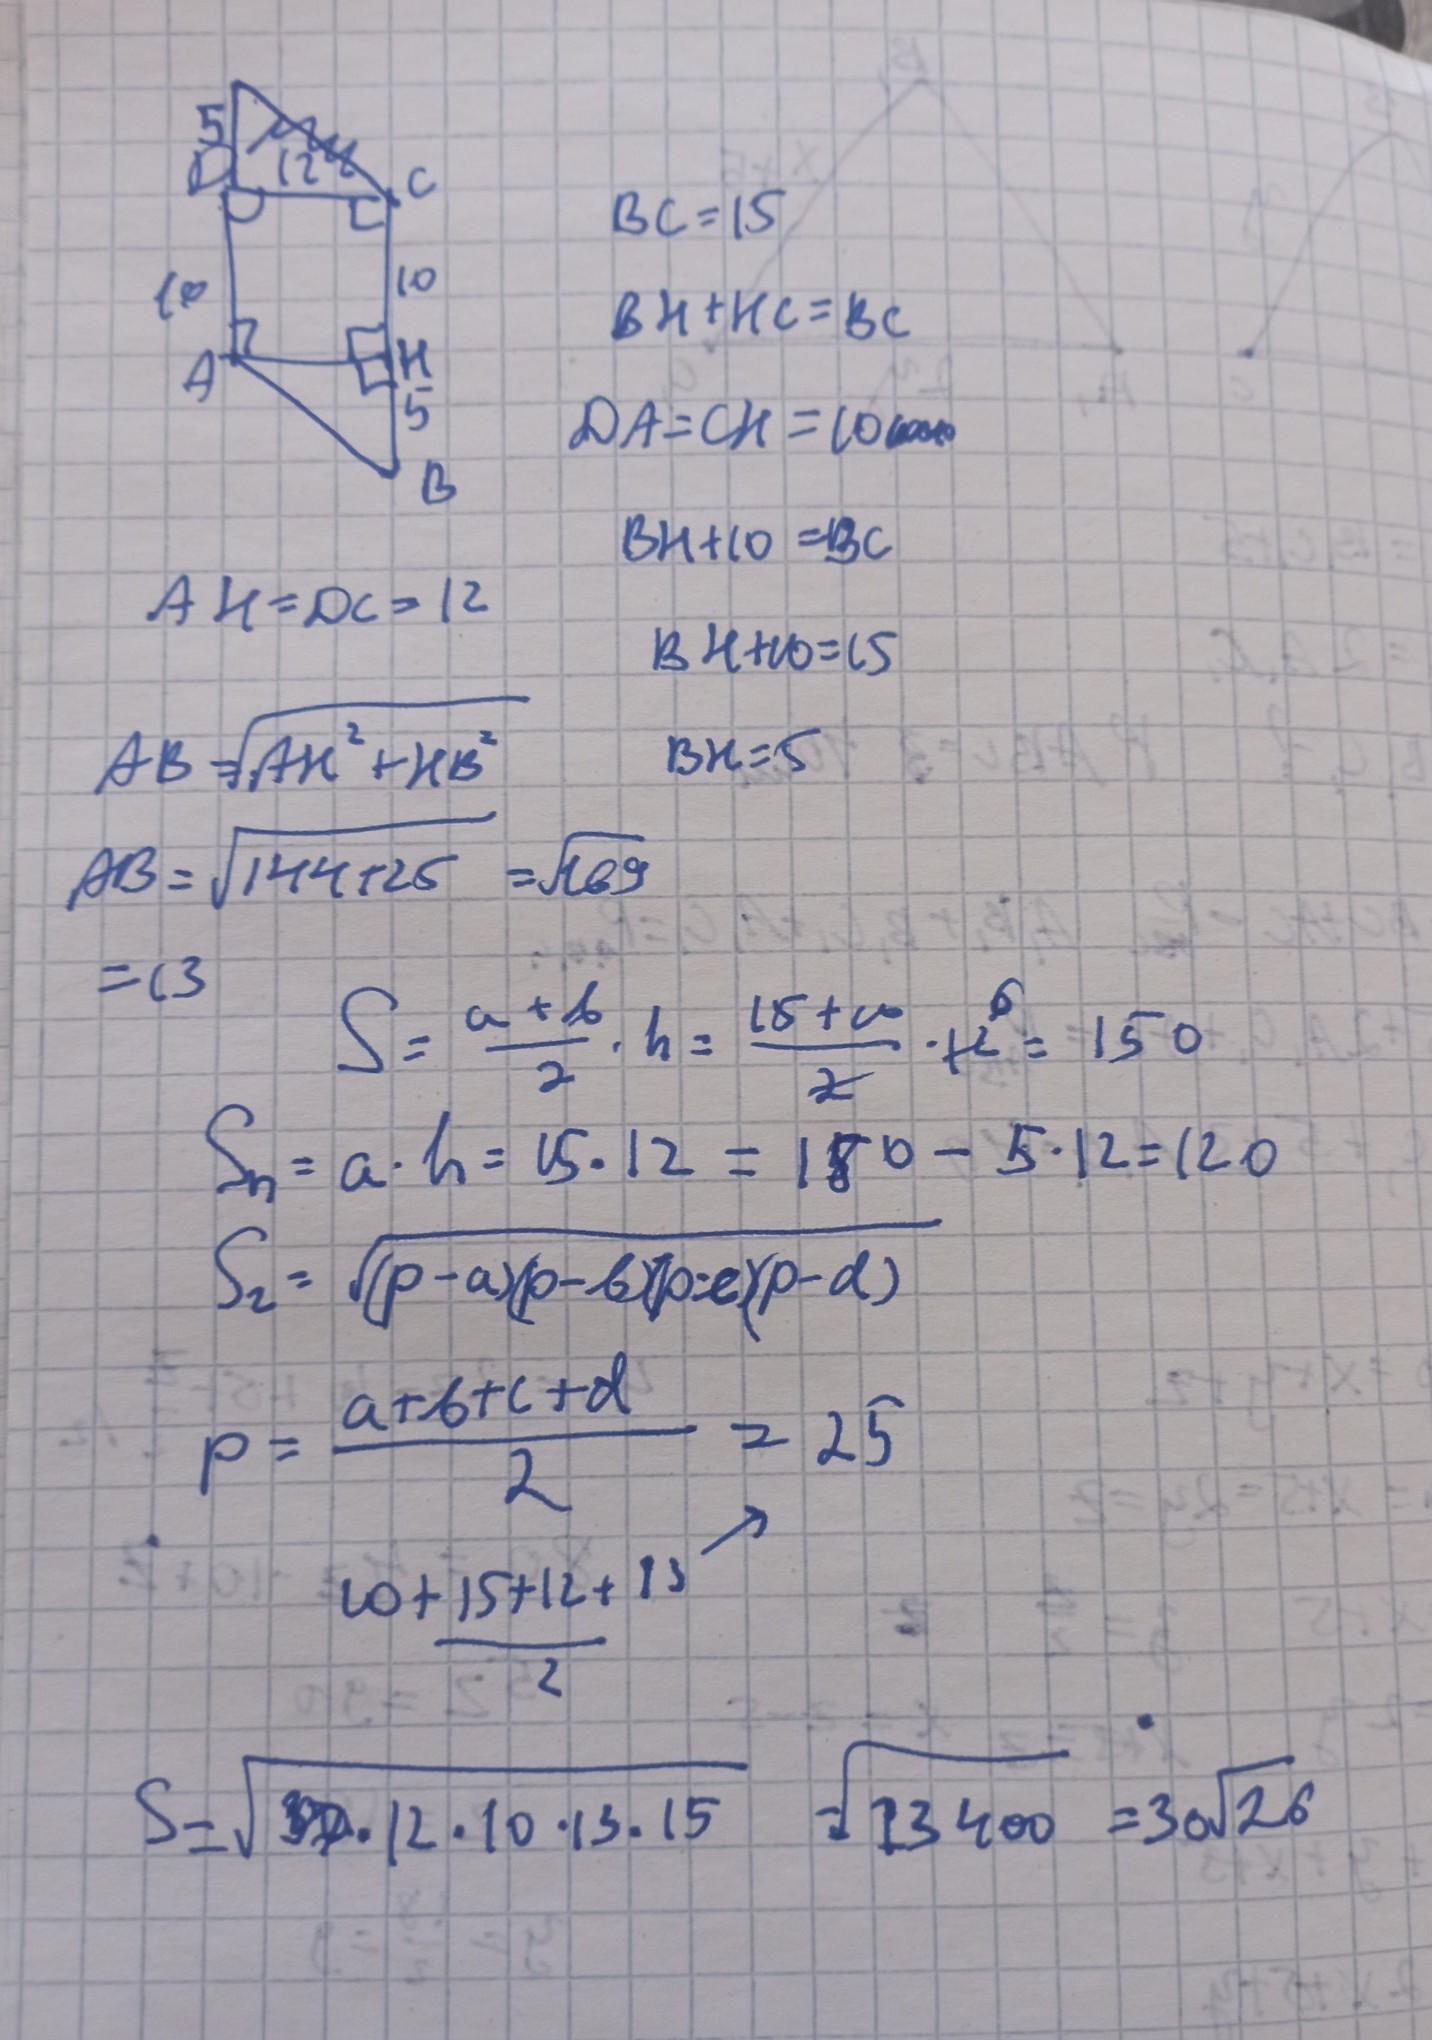 5
D 12 C
10 10
A H
5
B
BC=15
BH+HC=BC
DA=CH=10
BH+10=BC
BH+10=15
BH=5
AH=DC=12
AB=√AH²+HB²
AB=√144+25 =√169
=13
S= a+b/2 · h= 15+10/2 · 12 6 = 150
Sп= a·h= 15·12 = 180 - 5·12=120
S₂= √(p-a)(p-b)(p-c)(p-d)
p= a+b+c+d/2 = 25
10+15+12+13/2
S=√12·10·13·15 =√23400 =30√26